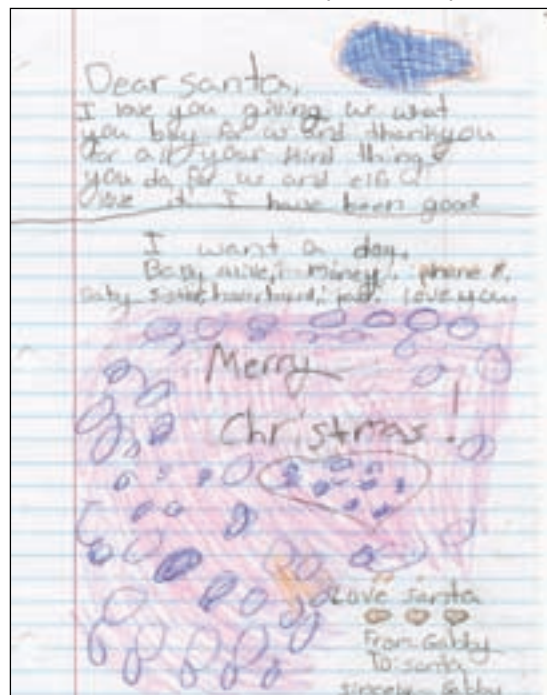 Dear santa,
I love you giving us what
you buy for us and thankyou
for all your kind things
you do for us and elf
love it I have been good
I want a dog,
Baby alive, money, phone 8,
baby love you
Merry
Christmas!
Love santa
From Gabby
To santa
sincerely Gabby